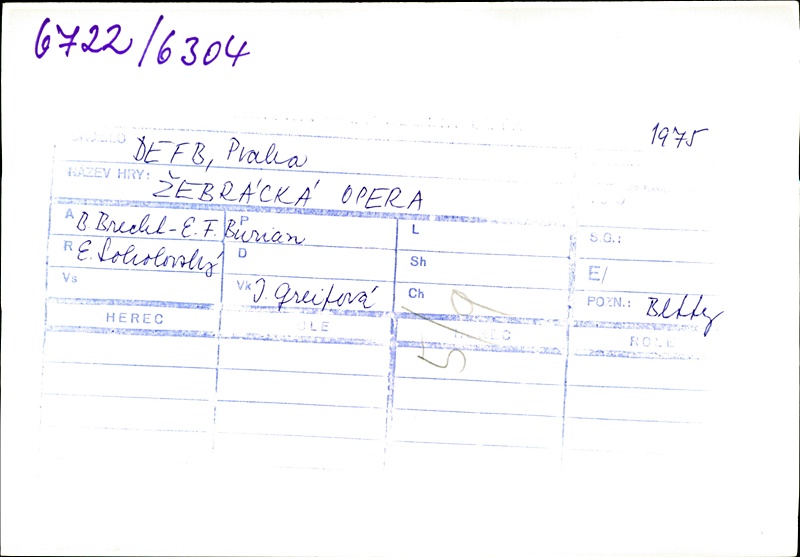 6722/6304
1975
DEFB, Praha
NÁZEV HRY: ŽEBRÁCKÁ OPERA
A B. Brecht - E. F. Burian P L S.G.:
R E. Sokolovský D Sh E/
Vs Vk J. Greifová Ch POZN.: Betty
5/9
HEREC ROLE HEREC ROLE